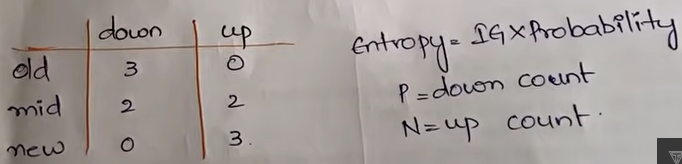 down up
old 3 0
mid 2 2
new 0 3.
Entropy = IG × Probability
P = down count
N = up count.